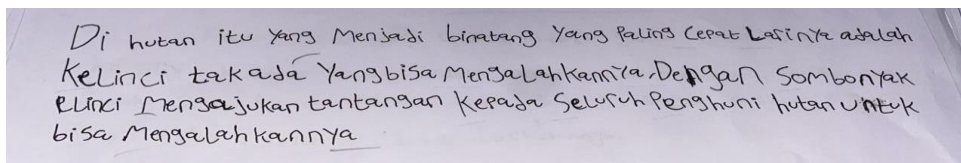 Di hutan itu Yang Menjadi binatang Yang Paling Cepat Larinya adalah
Kelinci takada Yang bisa Mengalahkannya. Dengan Sombonyak
elinci Mengajukan tantangan Kepada Seluruh Penghuni hutan Untuk
bisa Mengalahkannya